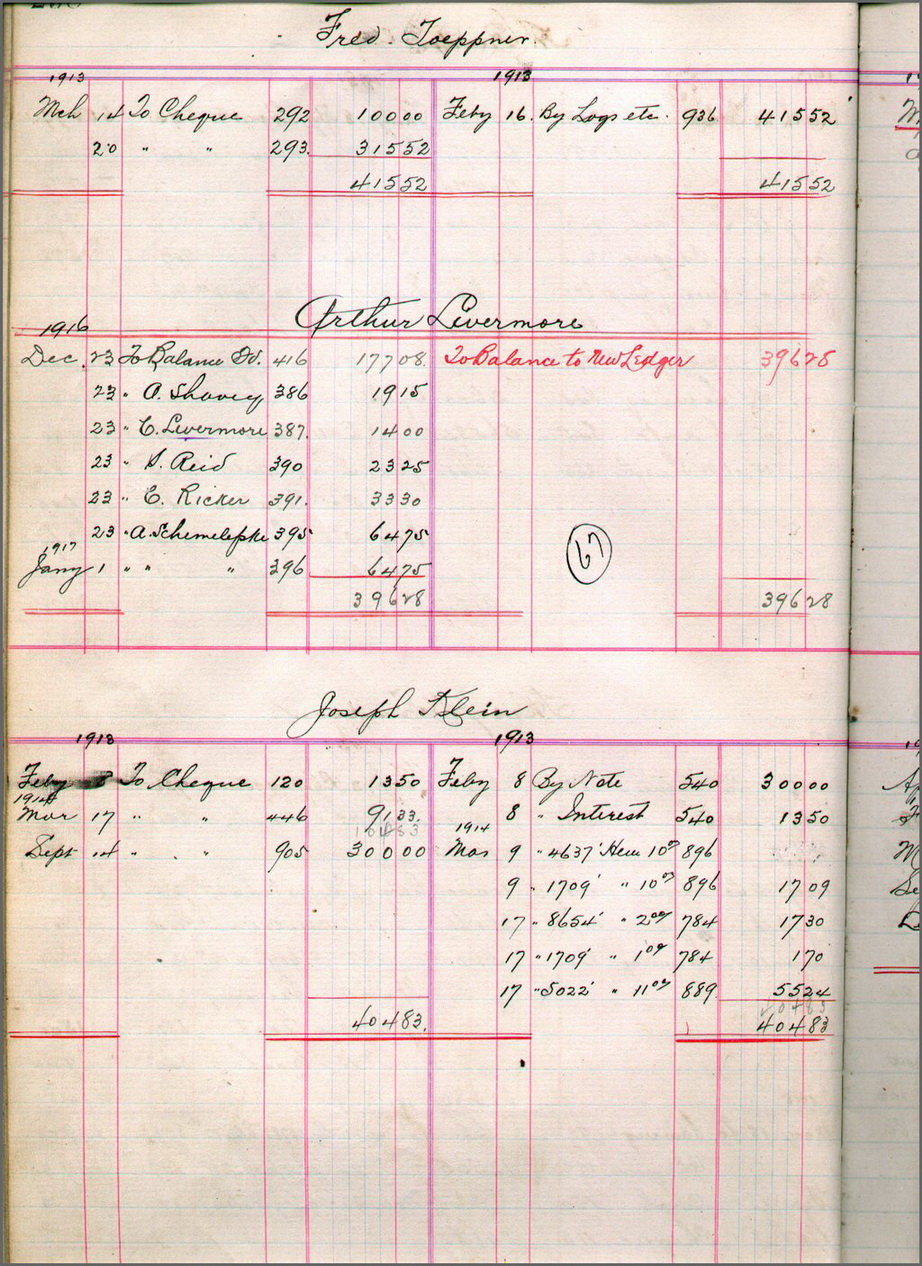 Fred. Toeppner.
1913 1913
Mch 14 To Cheque 292 10000 Feby 16. By Logs etc. 936 41552
20 " " 293. 31552
41552 41552
Arthur Levermore
1916
Dec. 23 To Balance Fd. 416 17708. To Balance to New Ledger 39628
23 " A. Shavey 386 1915
23 " C. Levermore 387. 1400
23 " S. Reid 390 2325
23 " E. Ricker 391. 3330
23 " A. Schemelefske 395 6475
1917
Jany 1 " " " 396 6475
67
39628 39628
Joseph Klein
1913 1913
Feby 8 To Cheque 120 1350 Feby 8 By Note 540 30000
1914
Mar 17 " " 446 9133. 8 " Interest 540 1350
10483
1914
Sept 14 " " 905 30000 Mar 9 " 4637' Hem 10⁰⁰ 896
9 " 1709' " 10⁰⁰ 896 1709
17 " 8654' " 2⁰⁰ 784 1730
17 " 1709' " 1⁰⁰ 784 170
17 " 5022' " 11⁰⁰ 889. 5524
40483
40483. 40483